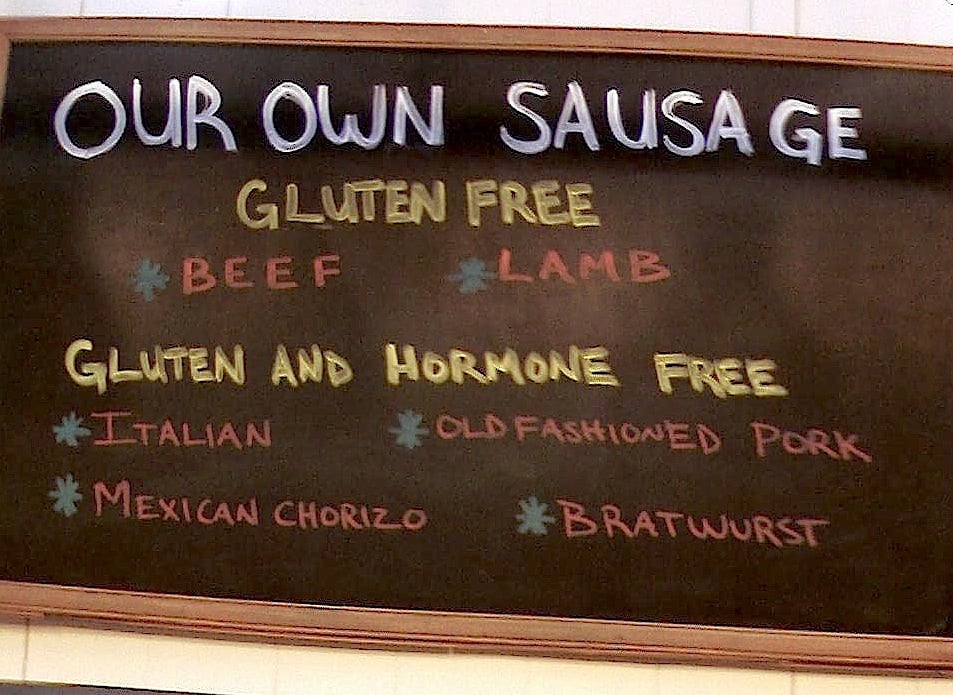 OUR OWN SAUSAGE
GLUTEN FREE
* BEEF * LAMB
GLUTEN AND HORMONE FREE
* ITALIAN * OLD FASHIONED PORK
* MEXICAN CHORIZO * BRATWURST